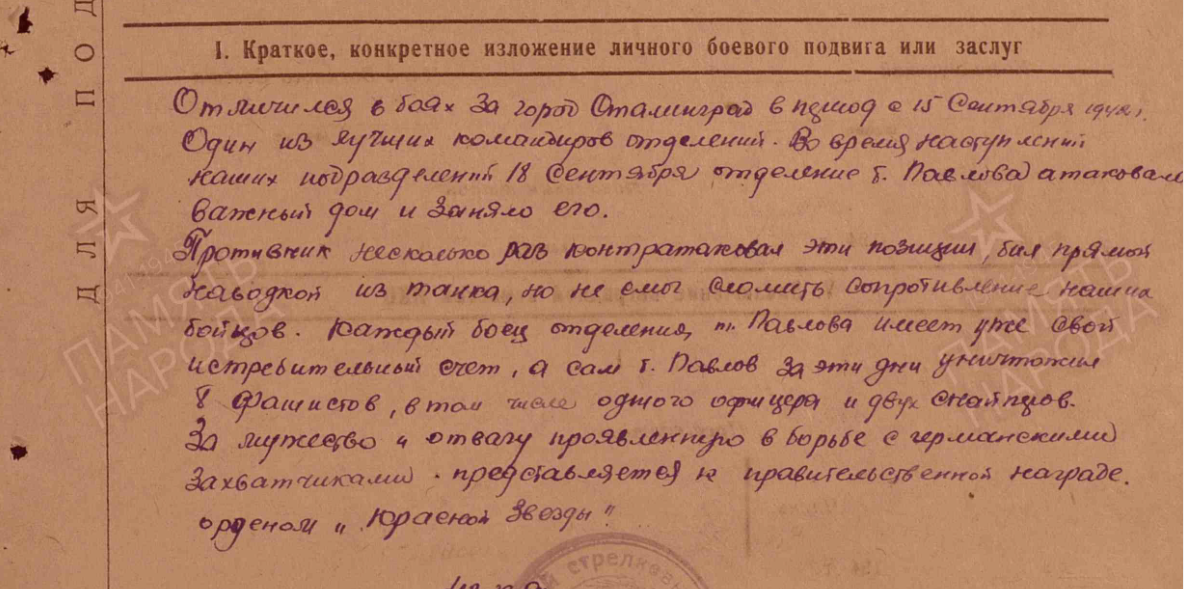 ДЛЯ ПОД
I. Краткое, конкретное изложение личного боевого подвига или заслуг
Отличился в боях за город Сталинград в период с 15 Сентября 1942 г.
Один из лучших командиров отделений. Во время наступлений
наших подразделений 18 Сентября отделение т. Павлова атаковало
важный дом и заняло его.
Противник несколько раз контратаковал эти позиции, бил прямой
наводкой из танка, но не смог сломить сопротивление наших
бойцов. Каждый боец отделения т. Павлова имеет уже свой
истребительный счет, а сам т. Павлов за эти дни уничтожил
8 фашистов, в том числе одного офицера и двух снайперов.
За мужество и отвагу проявленную в борьбе с германскими
захватчиками представляется к правительственной награде.
орденом „Красной Звезды"
ПАМЯТЬ
НАРОДА
ПАМЯТЬ
НАРОДА